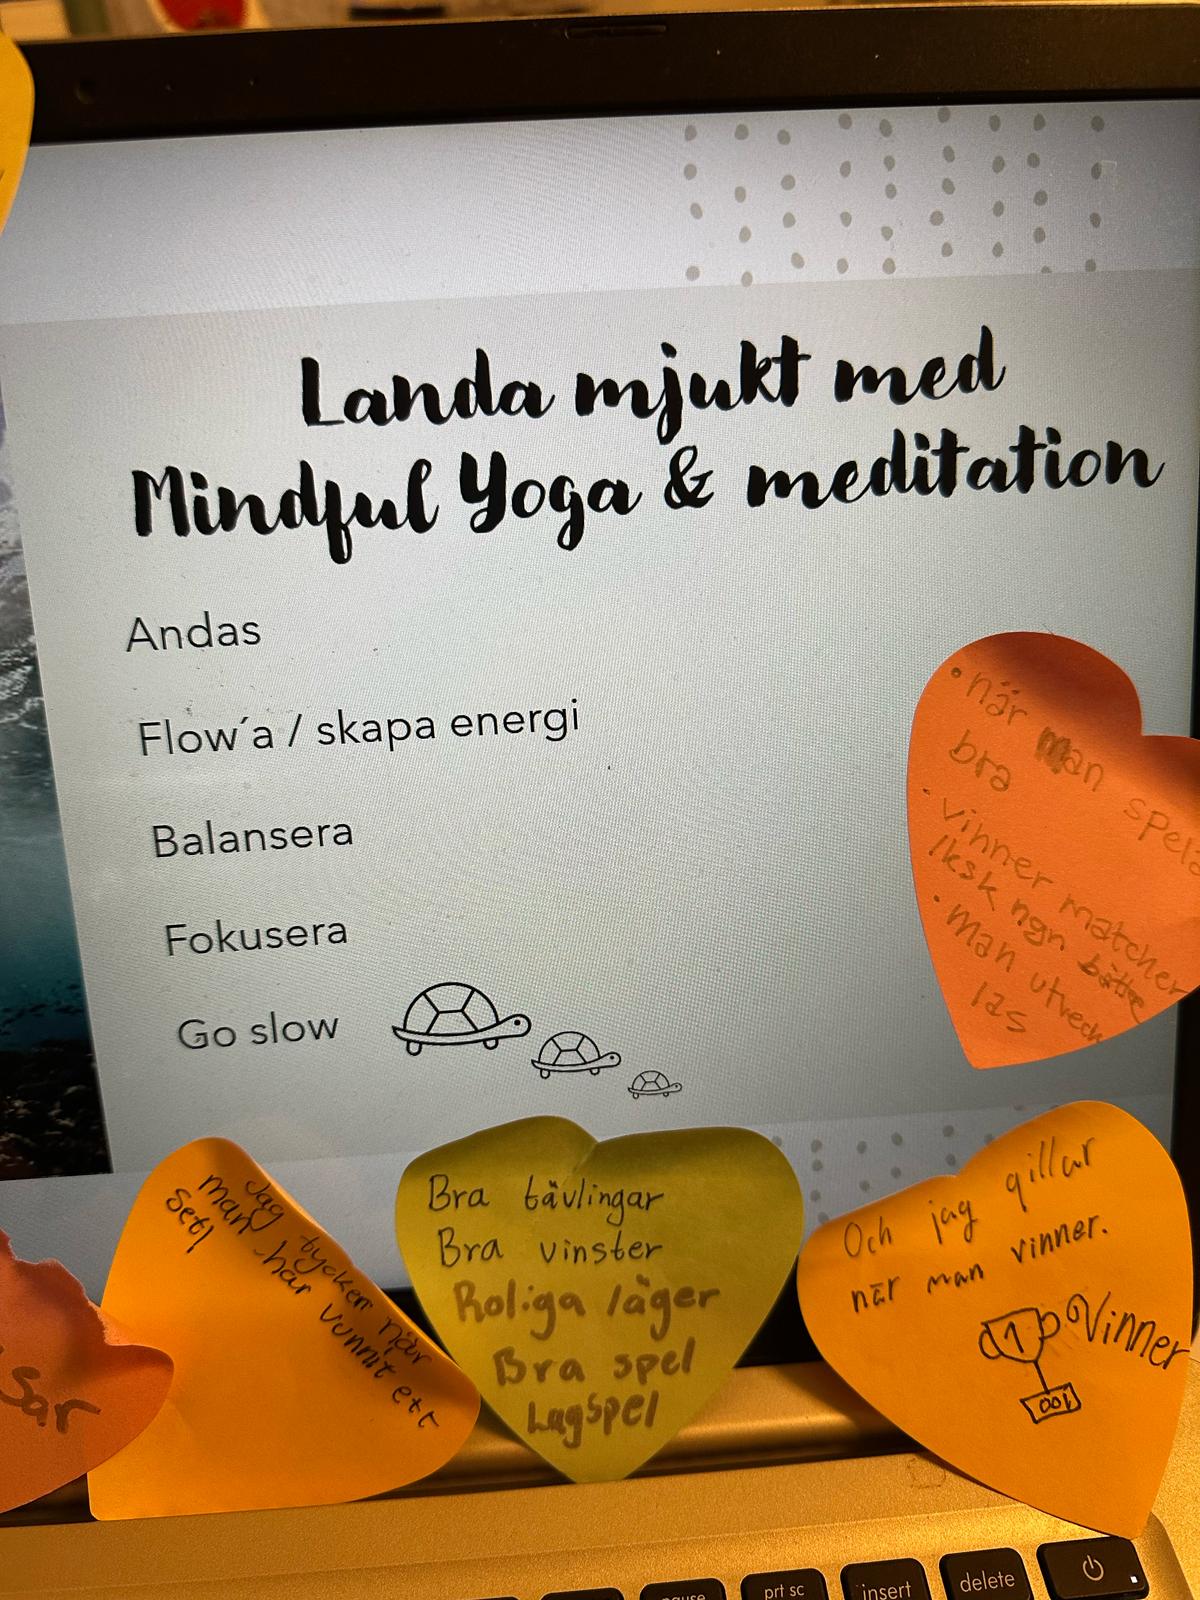 Landa mjukt med
Mindful Yoga & meditation
Andas
Flow´a / skapa energi
Balansera
Fokusera
Go slow
• när man spela
bra
• vinner matcher
lksk ngn
• Man utveck
las
Jag tycker när
man har vunnit ett
set!
Bra tävlingar
Bra vinster
Roliga läger
Bra spel
Lagspel
Och jag gillar
när man vinner.
1
Vinner
sar
prt sc
insert
delete